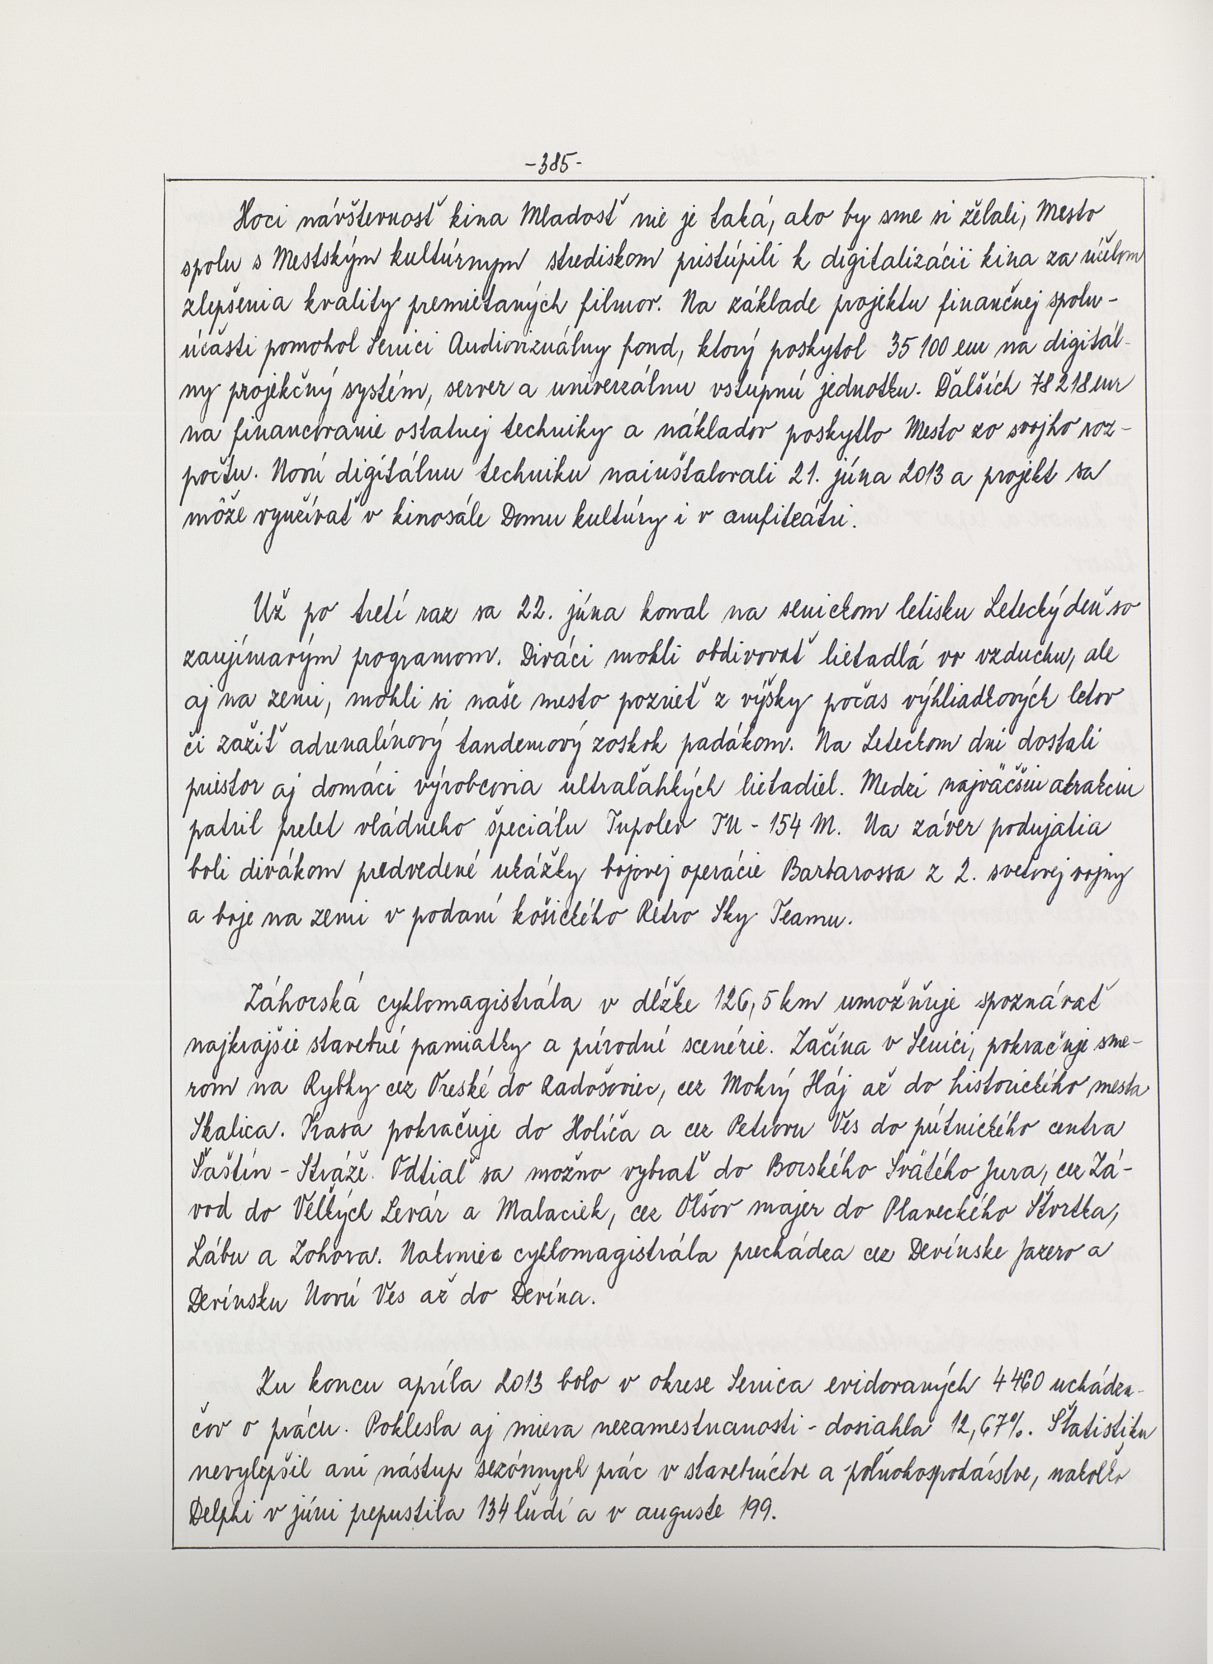 -385-
Hoci návštevnosť kina Mladosť nie je taká, ako by sme si želali, Mesto
spolu s Mestským kultúrnym strediskom pristúpili k digitalizácii kina za účelom
zlepšenia kvality premietaných filmov. Na základe projektu finančnej spolu-
účasti pomohol Senici Audiovizuálny fond, ktorý poskytol 35 100 eur na digitál-
ny projekčný systém, server a univerzálnu vstupnú jednotku. Ďalších 78 218 eur
na financovanie ostatnej techniky a nákladov poskytlo Mesto zo svojho roz-
počtu. Novú digitálnu techniku nainštalovali 21. júna 2013 a projekt sa
môže využívať v kinosále Domu kultúry i v amfiteátri.
Už po tretí raz sa 22. júna konal na senickom letisku Letecký deň so
zaujímavým programom. Diváci mohli obdivovať lietadlá vo vzduchu, ale
aj na zemi, mohli si naše mesto pozrieť z výšky počas výhliadkových letov
či zažiť adrenalínový tandemový zoskok padákom. Na Leteckom dni dostali
priestor aj domáci výrobcovia ultraľahkých lietadiel. Medzi najväčšiu atrakciu
patril prelet vládneho špeciálu Tupolev TU - 154 M. Na záver podujatia
boli divákom predvedené ukážky bojovej operácie Barbarossa z 2. svetovej vojny
a boje na zemi v podaní košického Retro Sky Teamu.
Záhorská cyklomagistrála v dĺžke 126,5 km umožňuje spoznávať
najkrajšie stavebné pamiatky a prírodné scenérie. Začína v Senici, pokračuje sme-
rom na Rybky cez Oreské do Radošoviec, cez Mokrý Háj až do historického mesta
Skalica. Trasa pokračuje do Holíča a cez Petrovu Ves do pútnického centra
Šaštín - Stráže. Odtiaľ sa možno vybrať do Borského Svätého Jura, cez Zá-
vod do Veľkých Levár a Malaciek, cez Olšov majer do Plaveckého Štvrtka,
Lábu a Zohora. Nakoniec cyklomagistrála prechádza cez Devínske Jazero a
Devínsku Novú Ves až do Devína.
Ku koncu apríla 2013 bolo v okrese Senica evidovaných 4 460 uchádza-
čov o prácu. Poklesla aj miera nezamestnanosti - dosiahla 12,67%. Štatistiku
nevylepšil ani nástup sezónnych prác v stavebníctve a poľnohospodárstve, nakoľko
Delphi v júni prepustila 134 ľudí a v auguste 199.